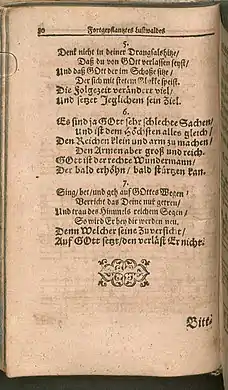 80 Fortgepflantztes lustwaldes
5.
Denk nicht in deiner Drangsalshitze/
Daß du von GOtt verlassen seyst/
Und daß GOtt der im Schoße sitze/
Der sich mit stetem Glükke speist.
Die Folgezeit verändert viel/
Und setzet Jeglichem sein Ziel.
6.
Es sind ja GOtt sehr schlechte Sachen/
Und ist dem Höchsten alles gleich/
Den Reichen klein und arm zu machen/
Den Armen aber groß und reich.
GOtt ist der rechte Wundermann/
Der bald erhöhn/ bald stürtzen kan.
7.
Sing/ bet/ und geh auf GOttes Wegen/
Verricht das Deine nur getreu/
Und trau des Himmels reichem Segen/
So wird Er bey dir werden neu.
Denn Welcher seine Zuversicht/
Auf GOtt setzt/ den verläst Er nicht.
Bitt-